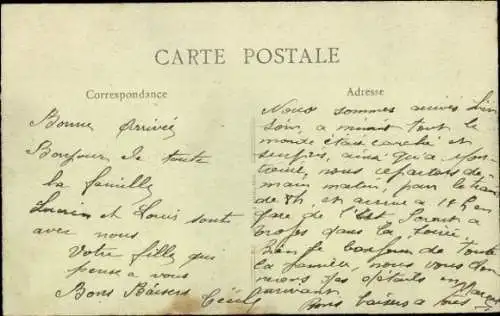 CARTE POSTALE
Correspondance
Bonne Arrivée
Bonjour de toute
la famille
et Louis sont
avec nous
Votre fille qui
pense a vous
Bons Baisers Cécile
Adresse
Nous sommes arrivés
soir, a minuit tout le
monde était couché et
ainsi qu'a
nous repartons de-
main matin, par le train
de 8h, et arrive a 18h en
gare de l'Est
dans la
bonjour de toute
la famille, nous vous don
nerons des détails en
suivant
Bons baisers a tous